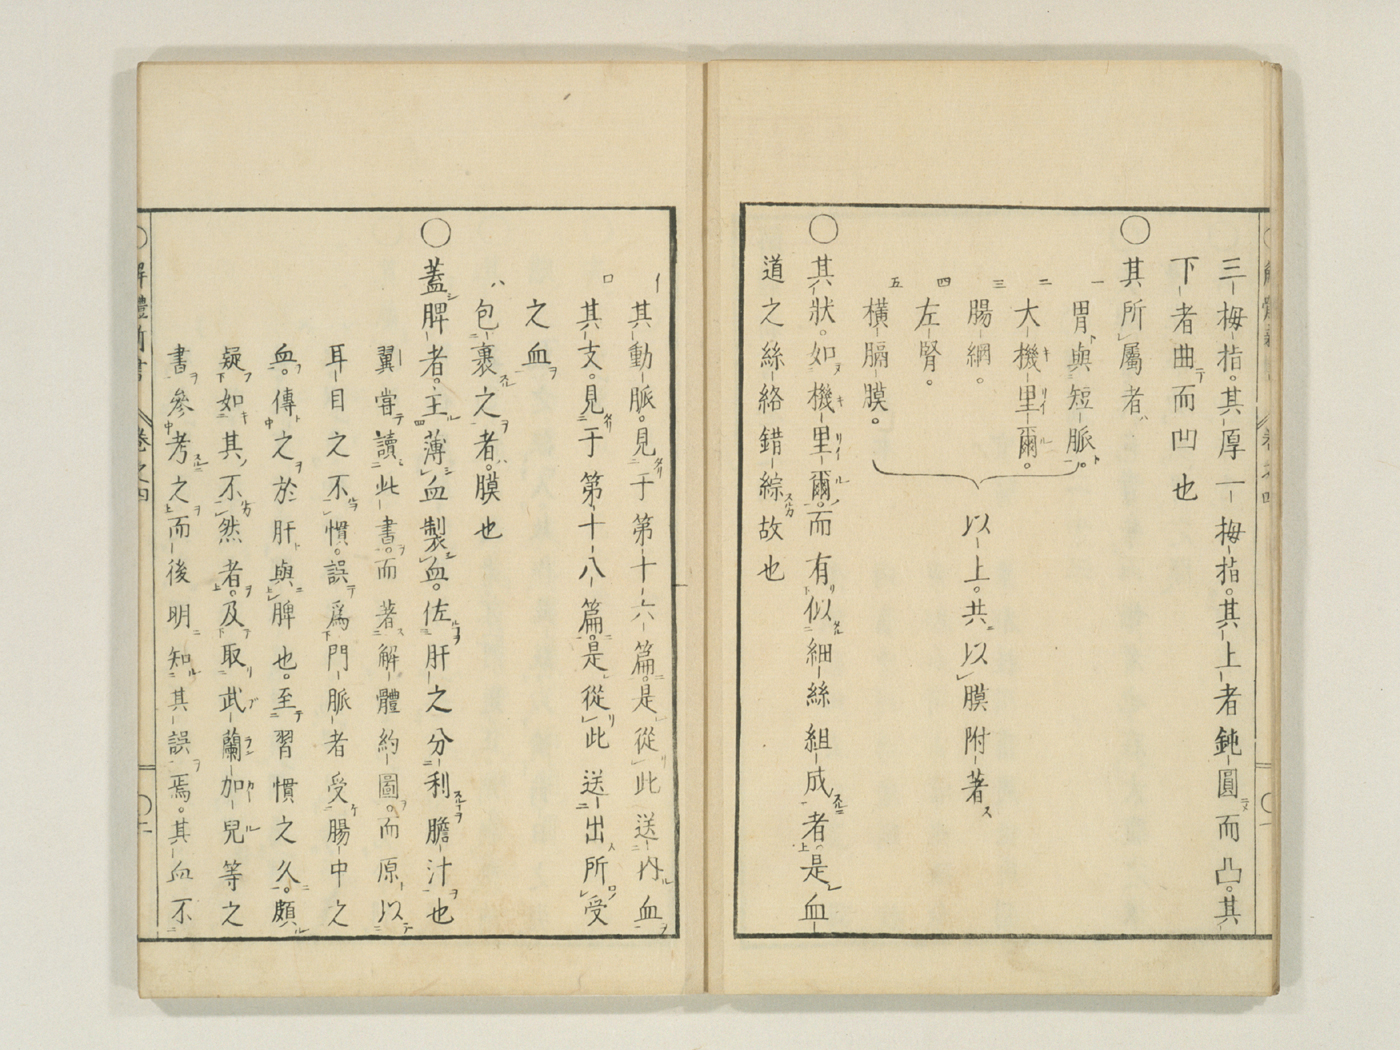 三梅指。其厚一梅指。其上者鈍圓而凸。其
下者曲而凹也
〇其所屬者
一 胃與短脈。
二 大機里爾。
三 腸網。
四 左腎。
五 橫膈膜。
以上。共以膜附著
〇其狀。如機里爾。而有似細絲組成者。是血
道之絲絡錯綜故也
イ 其動脈。見于第十六篇。是從此送內血
ロ 其支。見于第十八篇。是從此送出所受
之血
ハ 包裹之者。膜也
〇蓋脾者。主薄血製血。佐肝之分利膽汁也
翼嘗讀此書。而著解體約圖。而原以
耳目之不慣。誤爲門脈者受腸中之
血。傳之於肝與脾也。至習慣之久。頗
疑如其不然者。及取武蘭加兒等之
書參考之而後明知其誤焉。其血不
解體新書 卷之四 〇二